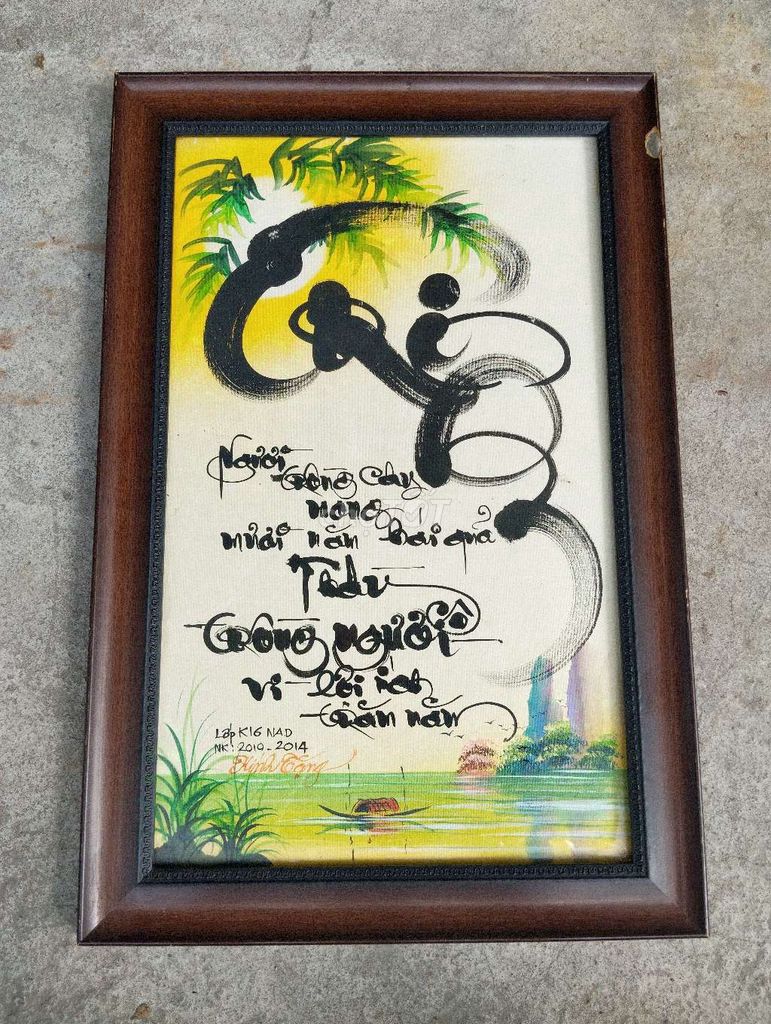 Người
trồng cây
mong
mười năm hái quả
Thầy
Cô
trồng người
vì lợi ích
trăm năm
Lớp K16 NAD
NK: 2010 - 2014
Kính Tặng